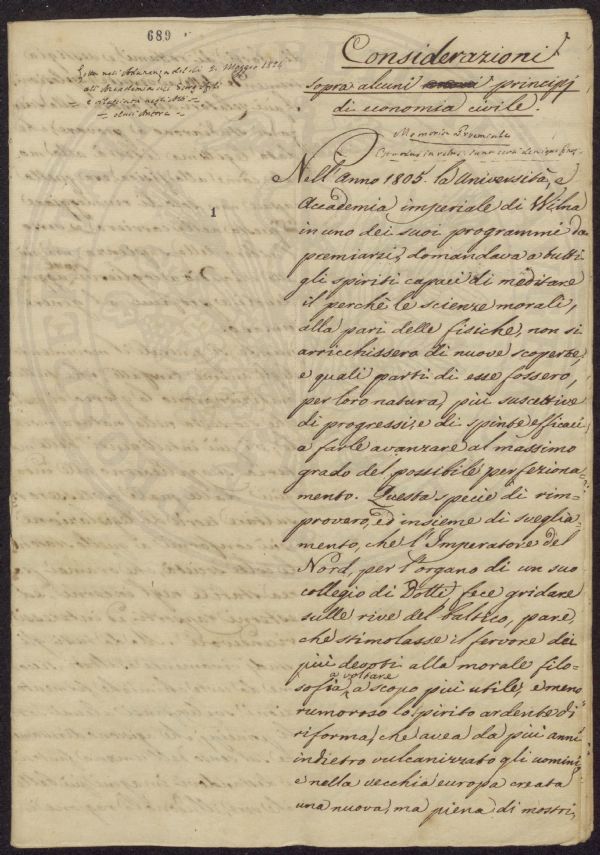 689
Letta nell'Adunanza del dì 2. Maggio 1824
all'Accademia dei Georgofili
Considerazioni
sopra alcuni principj
di economia civile.
Memoria
1
Nell'Anno 1805. la Università, e
Accademia imperiale di Wilna
in uno dei suoi programmi da
premiarsi, domandava a tutti
gli spiriti capaci di meditare
il perchè le scienze morali,
alla pari delle fisiche, non si
arricchissero di nuove scoperte,
e quali parti di esse fossero,
per loro natura, più suscettive
di progressi, e di spinte efficaci
a farle avanzare al massimo
grado del possibile perfeziona=
mento. Questa specie di rim=
provero, ed insieme di sveglia=
mento, che l'Imperatore del
Nord, per l'organo di un suo
collegio di Dotti, fece gridare
sulle rive del baltico, pare
che stimolasse il fervore dei
più devoti alla morale filo=
a voltare
sofia, a scopo più utile, e meno
rumoroso lo spirito ardente di
riforma, che avea da più anni
indietro vulcanizzato gli uomini,
e nella vecchia europa creata
una nuova, ma piena di mostri,